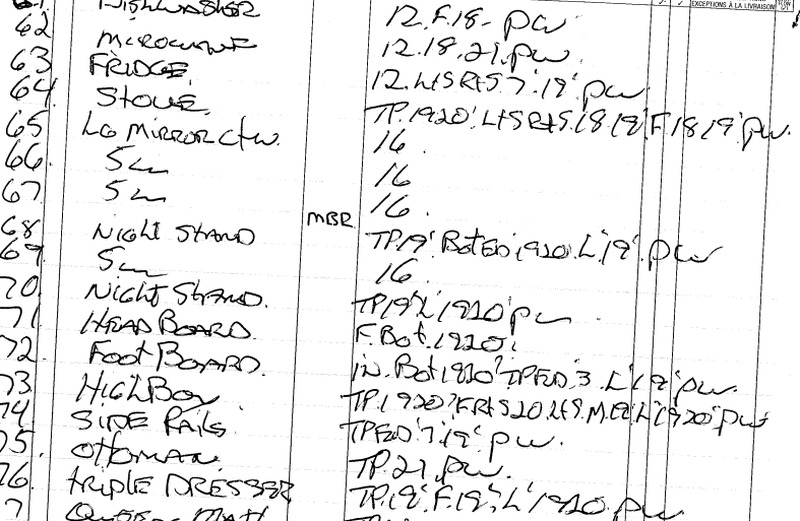 DISHWASHER 12.F.18- pw
EXCEPTIONS À LA LIVRAISON
62 MICROWAVE 12.18.29.pw
63 FRIDGE. 12.LtS RtS 7'.19'.pw
64 STOVE. TP.1920'.LtS RtS.18.19'.F.18.19'.pw.
65 LG MIRROR Ctw. 16
66. 5u 16
67. 5u MBR 16.
68 NIGHT STAND TP.19'.Bot ED'1920.L'.19'.pw
69 5u 16
70. NIGHT STAND. TP19'L'1920'pw
71 HEAD BOARD. F.Bot.1920'.
72. FOOT BOARD. IN.Bot1920'TPED.3.L'19'pw.
73 HIGHBOY TP.1920'FRtS20.LtS.M.19'.L'1920'pw
74 SIDE RAILS TPED'7.19'pw.
75 OTTOMAN. TP.29.pw.
76 TRIPLE DRESSER TP.19'.F.19'.L'1920.pw.
7 QUEEN MATT